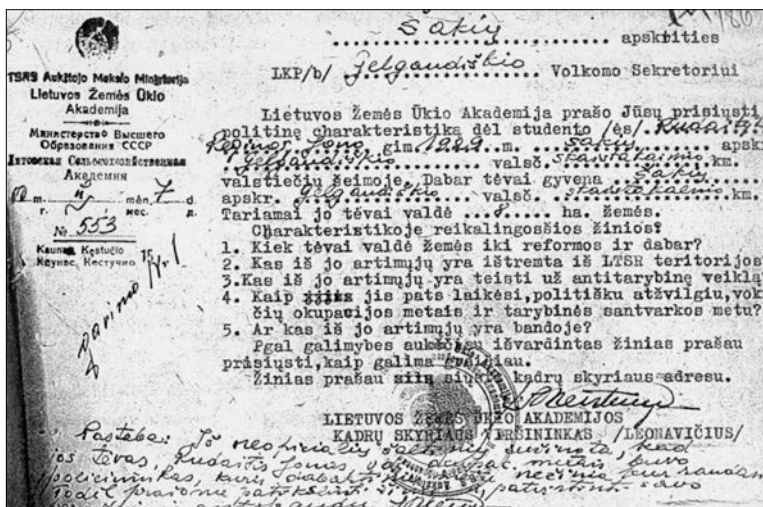 Šakių apskrities
LKP/b/ Gelgaudiškio Volkomo Sekretoriui
TSRS Aukštojo Mokslo Ministerija
Lietuvos Žemės Ūkio
Akademija
Министерство Высшего
Образования СССР
Литовская Сельскохозяйственная
Академия
m. mėn. 7 d.
г. мес. д.
№ 553
Kaunas, Kęstučio 15
Каунас, Кестучио
Nr 1
Lietuvos Žemės Ūkio Akademija prašo Jūsų prisiųsti
politinę charakteristiką dėl studento /ės/ Rudaitytės
Reginos Jono gim. 1929 m. Šakių apskr
Gelgaudiškio valsč. Skaistakaimio km.
valstiečių šeimoje. Dabar tėvai gyvena Šakių
apskr. Gelgaudiškio valsč. km.
Tariamai jo tėvai valdė 8 ha. žemės.
Charakteristikoje reikalingosčios žinios:
1. Kiek tėvai valdė žemės iki reformos ir dabar?
2. Kas iš jo artimųjų yra ištremta iš LTSR teritorijos
3.Kas iš jo artimųjų yra teisti už antitarybinę veiklą
4. Kaip jis pats laikėsi,politišku atžvilgiu,vok
čių okupacijos metais ir tarybinės santvarkos metu?
5. Ar kas iš jo artimųjų yra bandoje?
Pgal galimybes aukščiau išvardintas žinias prašau
prisiųsti,kaip galima greičiau.
Žinias prašau siųsti kadrų skyriaus adresu.
LIETUVOS ŽEMĖS ŪKIO AKADEMIJOS
KADRŲ SKYRIAUS VIRŠININKAS /LEONAVIČIUS/
Pastaba: Iš neoficialių šaltinių sužinota, kad
jos tėvas, Rudaitis Jonas, metais buvo
policininkas, kuris dabar
Todėl prašome patikslinti